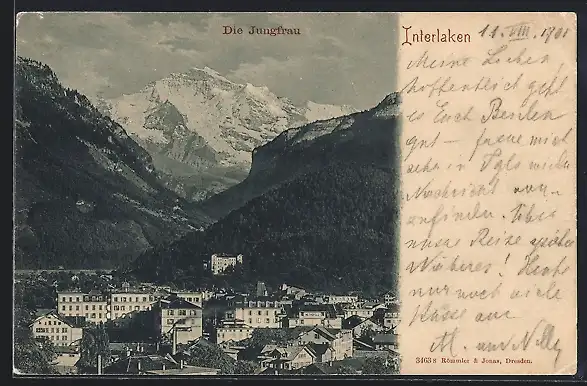 Die Jungfrau
Interlaken 11. VIII. 1901
Meine Lieben,
hoffentlich geht
es Euch Beiden
gut – freue mich
sehr in Igls wieder
Nachricht vor-
zufinden. Über
unsre Reise später
Näheres! Heute
nur noch viele
Küsse aus
M. und Nelly
31638 Römmler & Jonas, Dresden.